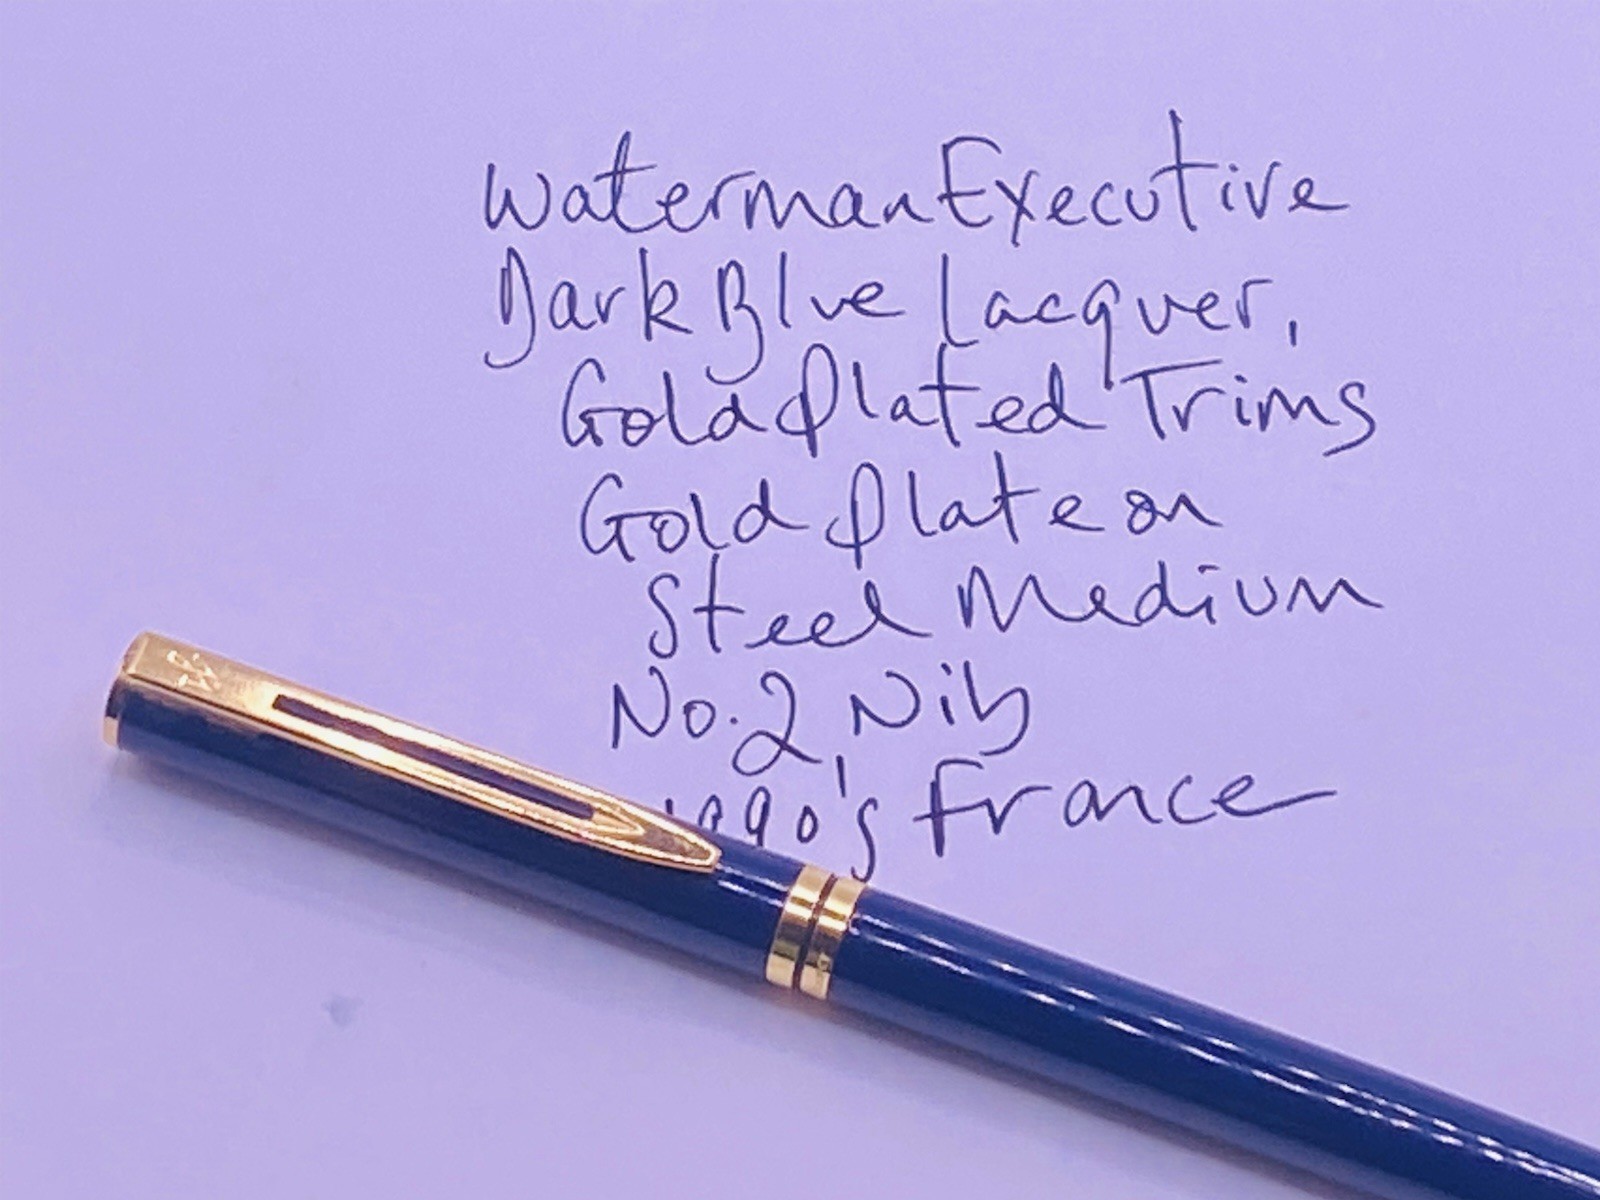 Waterman Executive
Dark Blue Lacquer,
Gold Plated Trims
Gold Plate on
Steel Medium
No. 2, Nib
1990's France